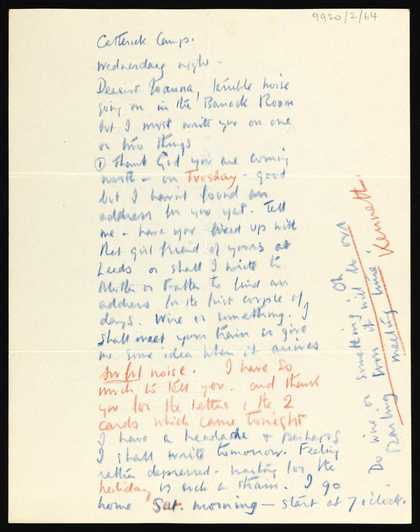 9920/2/64
Catterick Camp.
Wednesday night -
Dearest Joanna, terrible noise
going on in the Barrack Room
but I must write you on one
or two things
① Thank God you are coming
north - on Tuesday - good
but I havnt found an
address for you yet. Tell
me - have you fixed up with
that girl friend of yours at
Leeds or shall I write to
Mother or to find an
address for the first couple of
days. Wire or something. I
shall meet your train so give
me some idea when it arrives
Awful noise. I have so
much to tell you. and thank
you for the letter & the 2
cards which came tonight
I have a headache & perhaps
I shall write tomorrow. Feeling
rather depressed - waiting for the
holiday is such a strain. I go
home Sat. morning - start at 7 o'clock.
Do wire or something! Oh
Darling soon it will be our
meeting time! Kenneth.